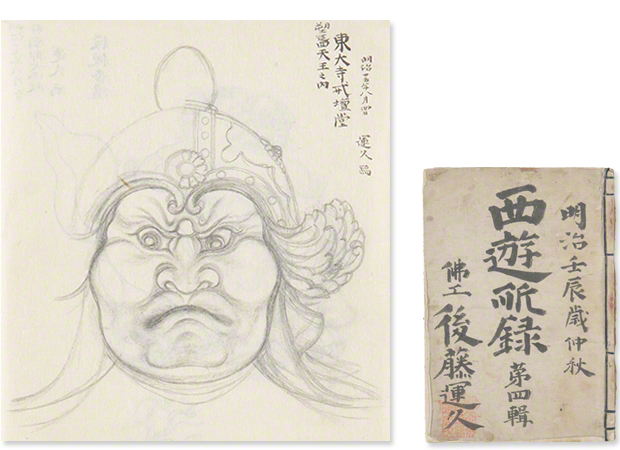 明治 年八月
運久
東大寺戒壇堂
天王之内
明治壬辰歳仲秋
西遊所録
第四輯
佛工 後藤運久